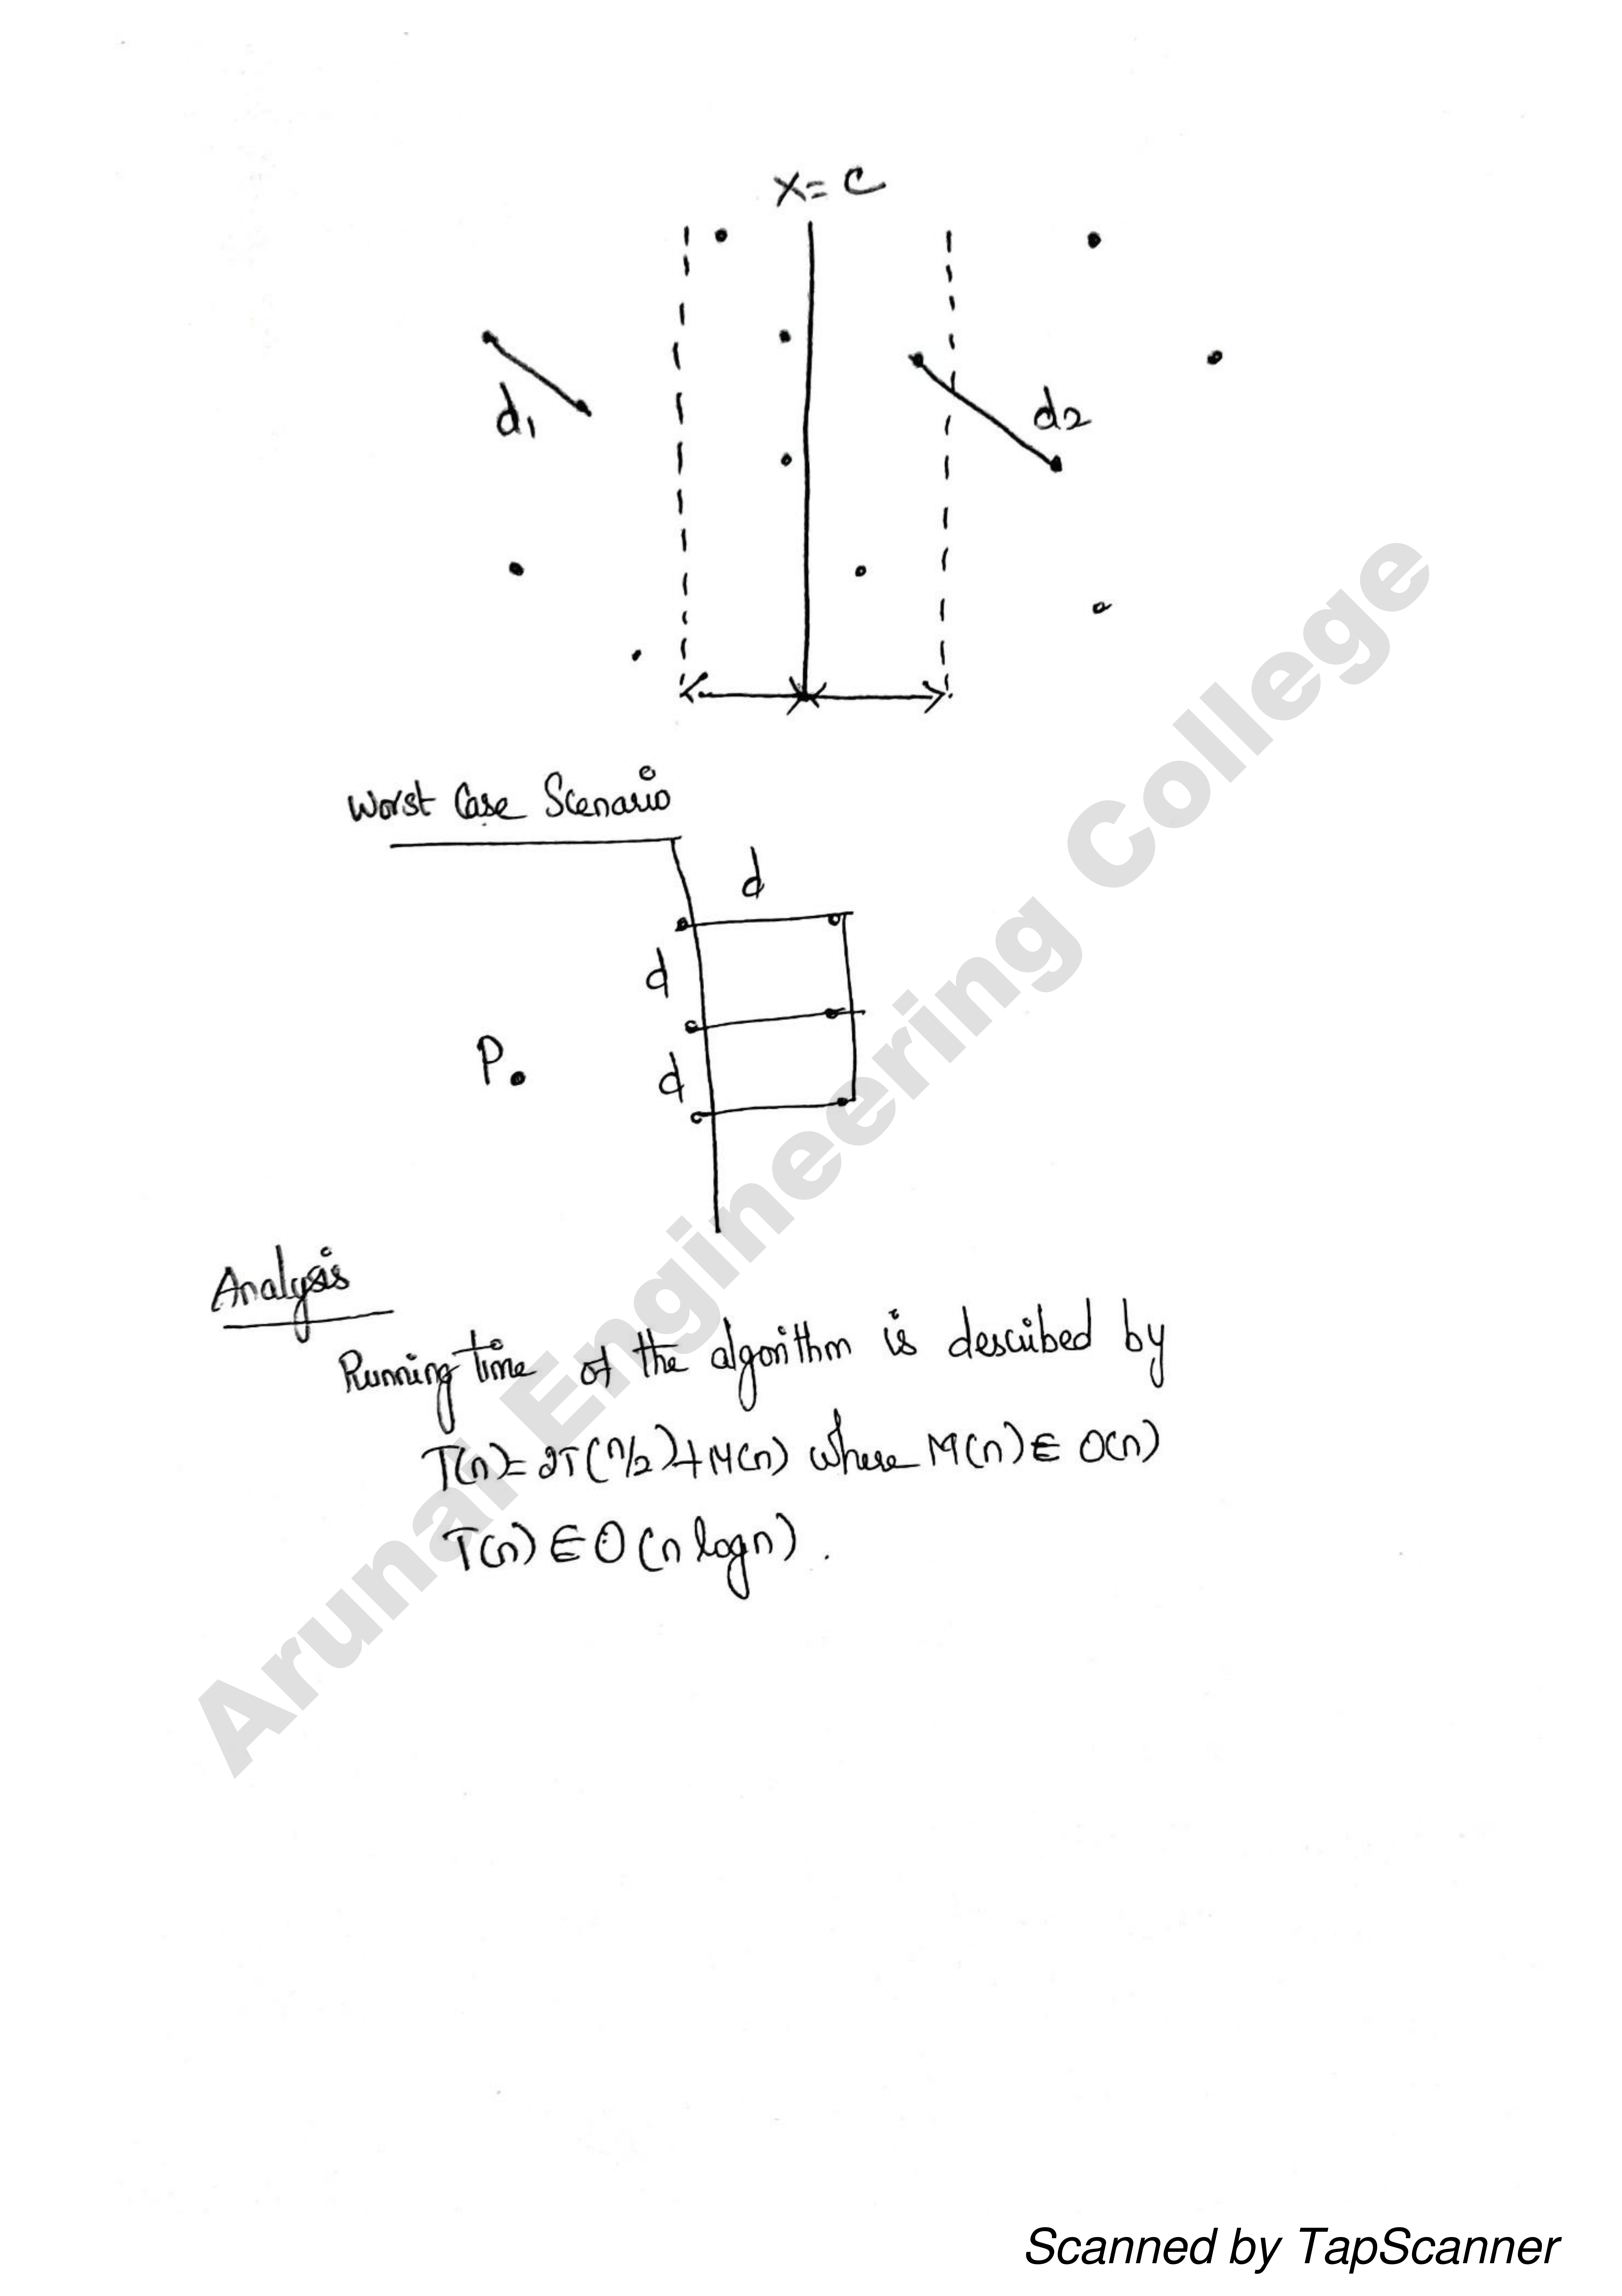 X = C
d1
d2
Worst Case Scenario
d
d
P.
d
Analysis
Running time of the algorithm is described by
T(n) = 2T(n/2) + M(n) where M(n) ∈ O(n)
T(n) ∈ O(n log n).
Arunai Engineering College
Scanned by TapScanner